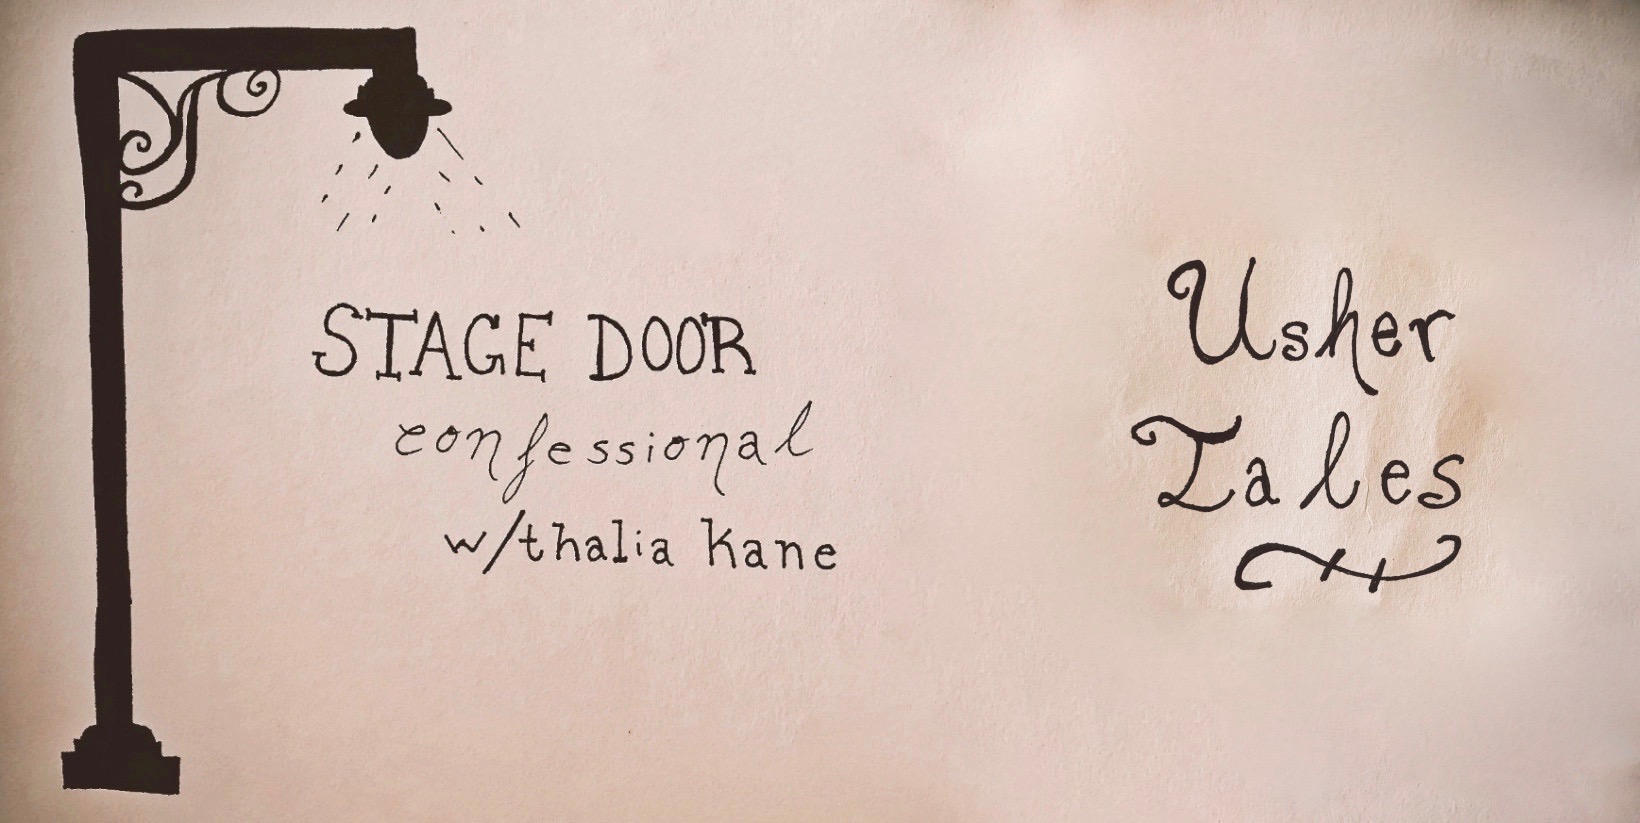 STAGE DOOR
confessional
w/thalia kane
Usher
Tales